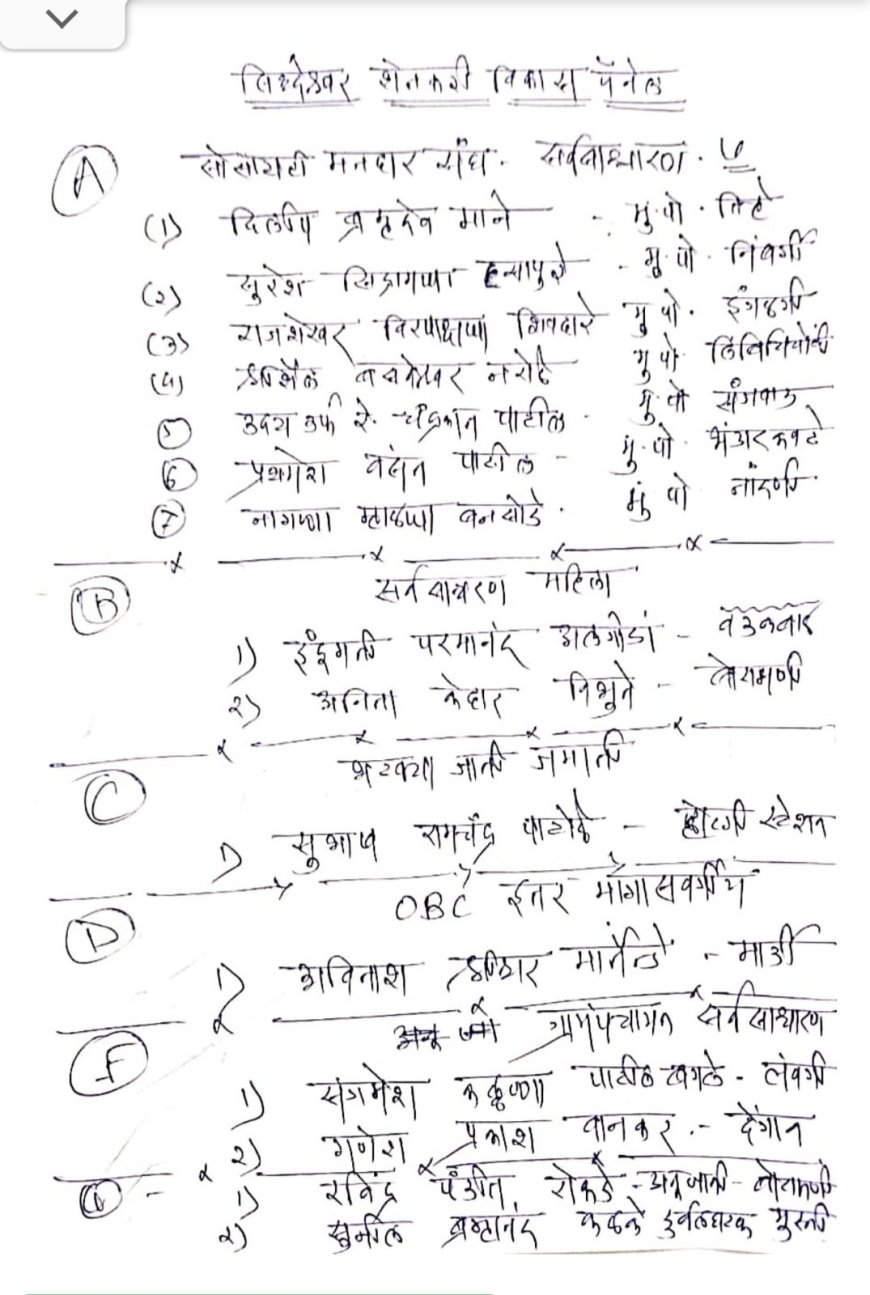 सिध्देश्वर शेतकरी विकास पॅनेल
A सोसायटी मतदार संघ. सर्वसाधारण. ७
(1) दिलीप ब्रम्हदेव माने - मु.पो. तिर्हे
(2) सुरेश सिद्रामप्पा हत्तापुरे - मु. पो. निंबर्गी
(3) राजशेखर विरपाक्षप्पा शिवदारे मु पो. इंगळगी
(4) श्रीशैल बसवेश्वर नरोळे मु पो
5 उदय उर्फ रे. चंद्रकांत पाटील - मु. पो
6 प्रथमेश वसंत पाटील - मु. पो. भंडारकवठे
7 नागप्पा म्हाळप्पा बनसोडे. मु पो नांदणी
B सर्वसाधारण महिला
1) इंदुमती परमानंद अलगोंडा - वडकबाळ
2) अनिता केदार विभुते - बोरामणी
C भटक्या जाती जमाती
1) सुभाष रामचंद्र पाटोळे - होटगी स्टेशन
D OBC इतर मागासवर्गीय
1) अविनाश मार्तंडे - मार्डी
F ग्रामपंचायत सर्वसाधारण
1) संगमेश पाटील बगले - लवंगी
2) गणेश प्रकाश वानकर. - देगांव
G - 1) रविंद्र पंडीत रोकडे - अनु जाती - बोरामणी
2) सुनील ब्रम्हानंद कळके दुर्बलघटक मुस्ती